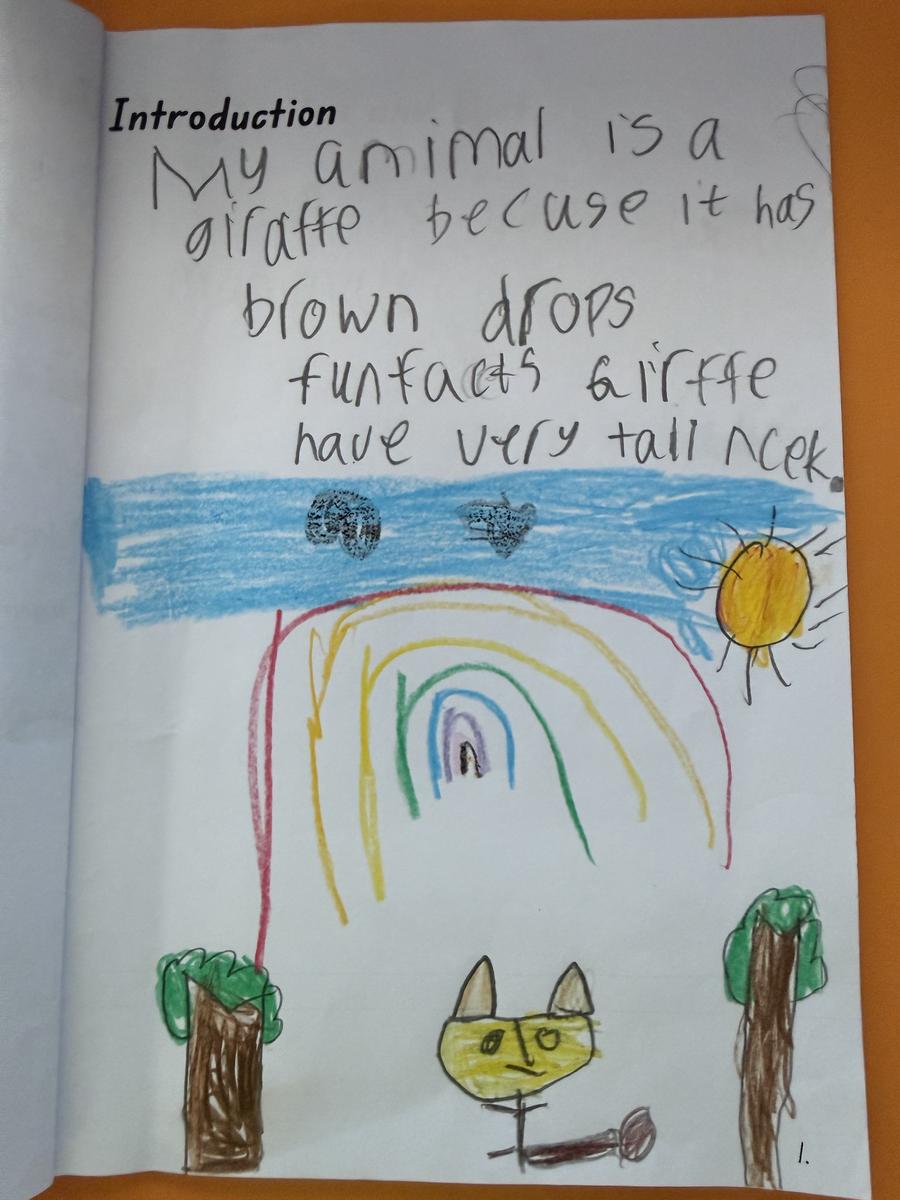 Introduction
My amimal is a
giraffe becuase it has
brown drops
funfacts Girffe
have very tall ncek.
1.